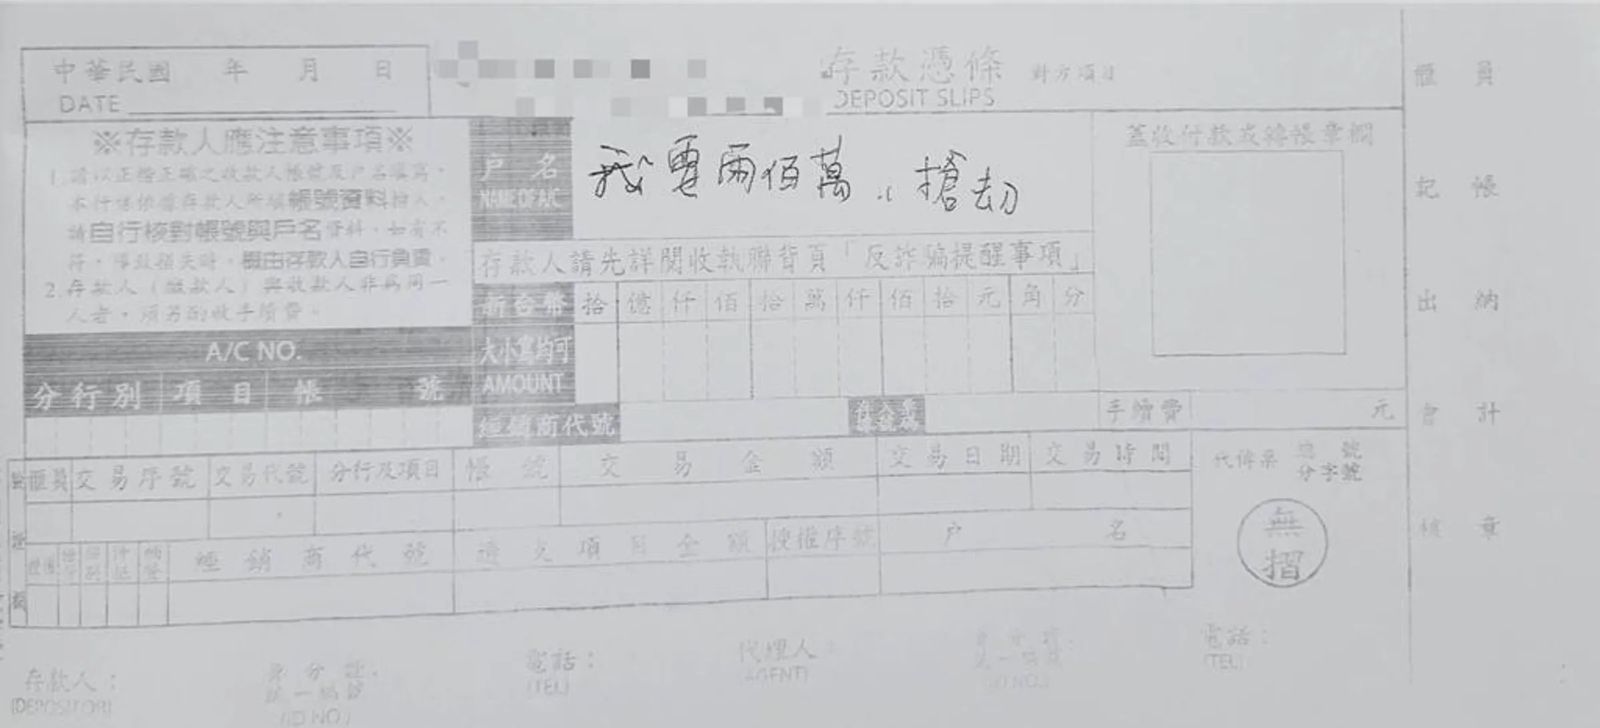 中華民國 年 月 日
DATE
存款憑條 對方項目
DEPOSIT SLIPS
櫃員
※存款人應注意事項※
1.請以正楷正確之收款人帳號及戶名填寫，
本行僅依據存款人所填帳號資料撥入，
請自行核對帳號與戶名資料，如有不
符，導致損失時，概由存款人自行負責。
2.存款人（繳款人）與收款人非為同一
人者，須另酌收手續費。
戶名
NAME OF A/C
我要兩佰萬，搶劫
蓋收付款或轉帳章欄
記帳
存款人請先詳閱收執聯背頁「反詐騙提醒事項」
新台幣 拾 億 仟 佰 拾 萬 仟 佰 拾 元 角 分
出納
大小寫均可
AMOUNT
A/C NO.
分行別 項目 帳號
經銷商代號
手續費 元
會計
櫃員 交易序號 交易代號 分行及項目 帳號 交易金額 交易日期 交易時間
代傳票 總號
分字號
經銷商代號 項目金額 授權序號 戶名
無
摺
章
存款人：
(DEPOSITOR)
身分證
統一編號
(ID NO.)
電話：
(TEL)
代理人：
(AGENT)
身分證
統一編號
(ID NO.)
電話：
(TEL)